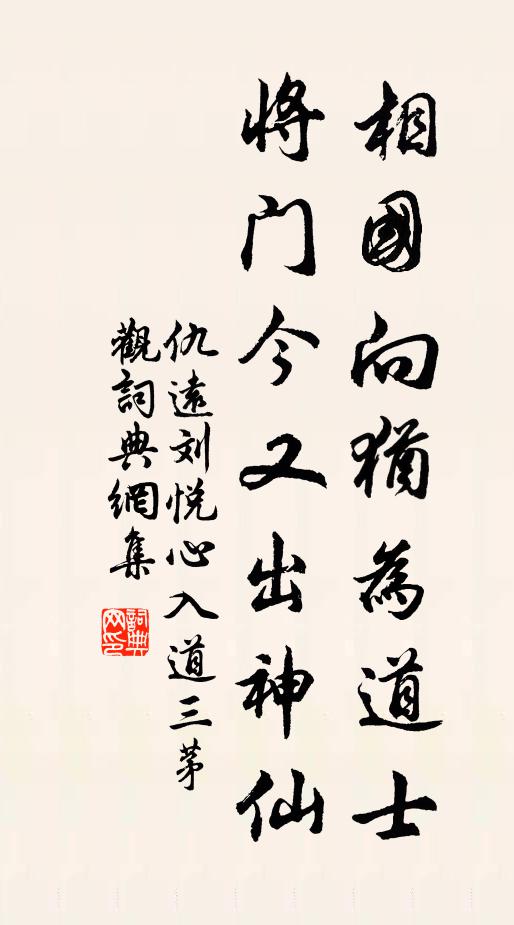 相國向猶為道士
將门今又出神仙
仇遠刘悦心入道三茅
觀詞典網集
詞典網印